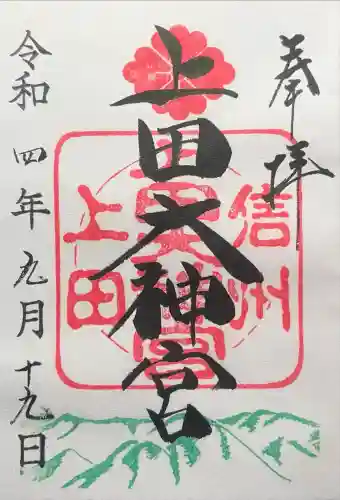 奉拝
上田大神宮
信州
上田
大神宮
令和四年九月十九日